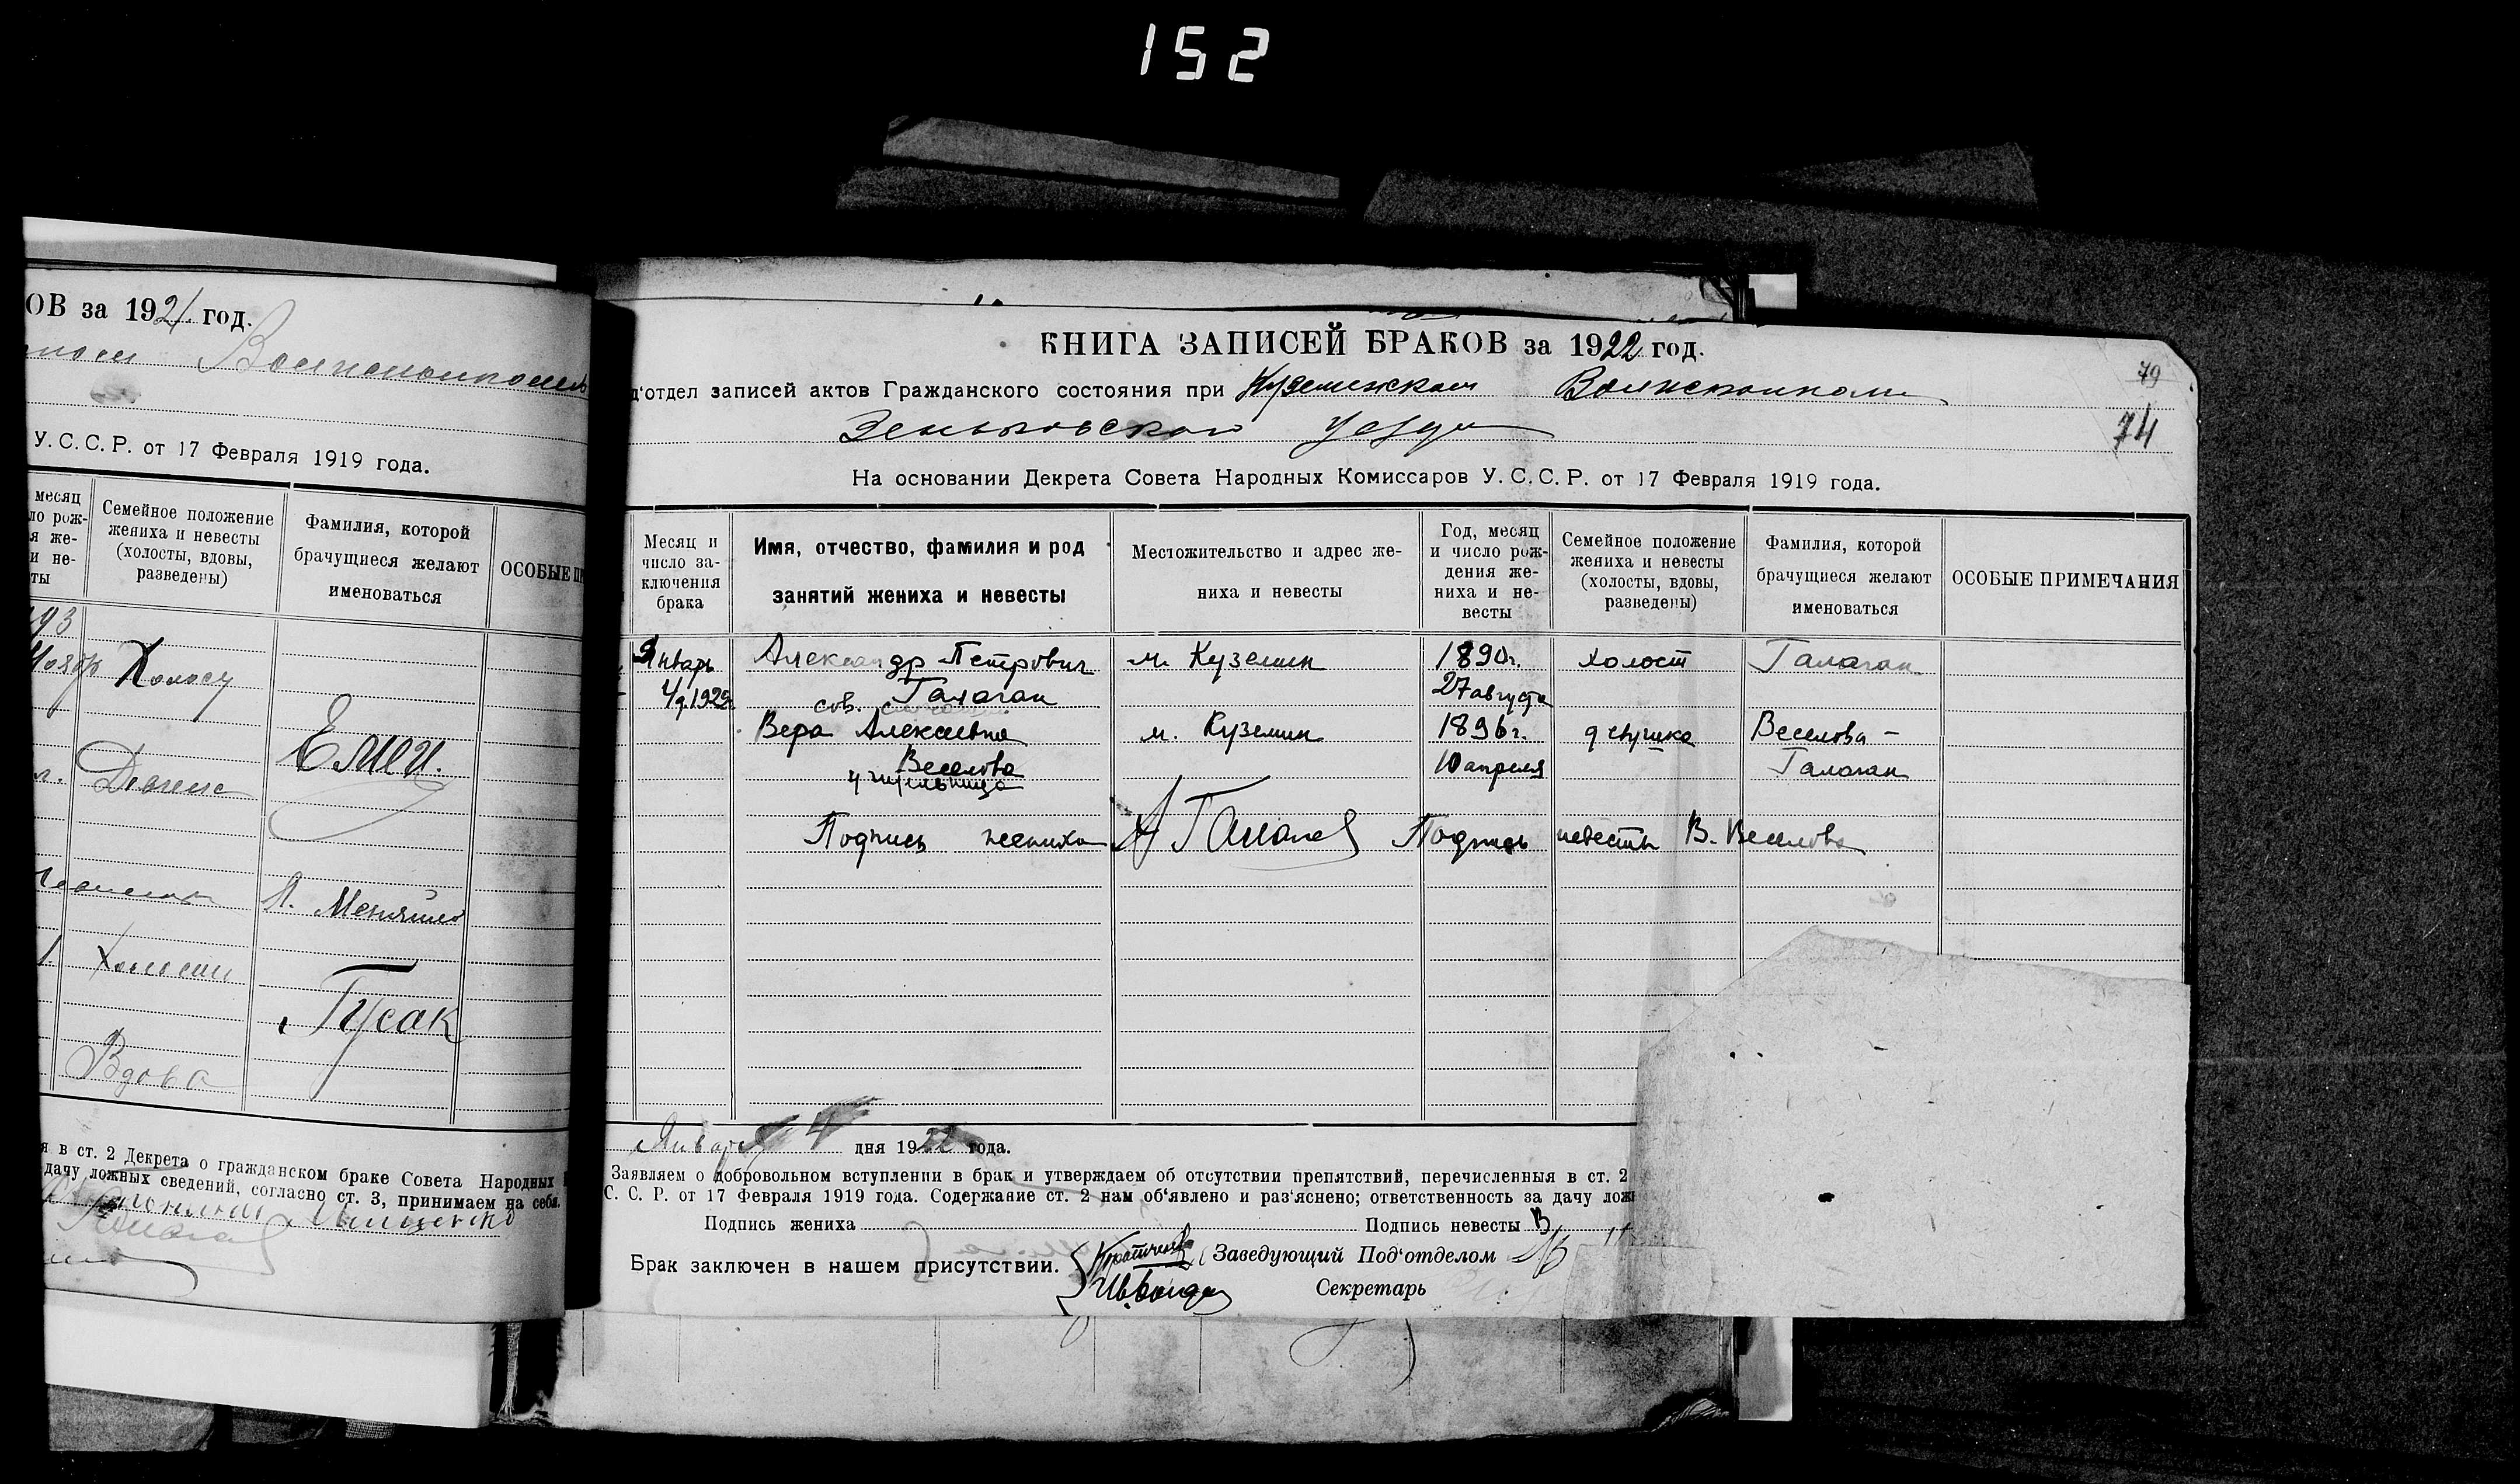 152
ОВ за 1921 год.
Волисполкоме
У.С.С.Р. от 17 Февраля 1919 года.
месяц
ло рож-
я же-
и не-
ты
Семейное положение
жениха и невесты
(холосты, вдовы,
разведены)
Фамилия, которой
брачущиеся желают
именоваться
ОСОБЫЕ ПР
Холост
Емец.
Девица
Я. Меняйло
Холост
Гусак
Вдова
я в ст. 2 Декрета о гражданском браке Совета Народных
дачу ложных сведений, согласно ст. 3, принимаем на себя.
КНИГА ЗАПИСЕЙ БРАКОВ за 1922 год.
79
д'отдел записей актов Гражданского состояния при Куземинском Волисполкоме
74
Зеньковского уезда
На основании Декрета Совета Народных Комиссаров У.С.С.Р. от 17 Февраля 1919 года.
Месяц и
число за-
ключения
брака
Имя, отчество, фамилия и род
занятий жениха и невесты
Местожительство и адрес же-
ниха и невесты
Год, месяц
и число рож-
дения же-
ниха и не-
весты
Семейное положение
жениха и невесты
(холосты, вдовы,
разведены)
Фамилия, которой
брачущиеся желают
именоваться
ОСОБЫЕ ПРИМЕЧАНИЯ
Январь Александр Петрович м. Куземин 1890г. холост Галаган
4 д. 1922 Галаган 27 августа
сов.
Вера Алексеевна м. Куземин 1896г. девушка Веселова -
Веселова 10 апреля Галаган
учительница
Подпись жениха А Галаган Подпись невесты В. Веселова
Января 4 дня 1922 года.
Заявляем о добровольном вступлении в брак и утверждаем об отсутствии препятствий, перечисленныя в ст. 2
С. С. Р. от 17 Февраля 1919 года. Содержание ст. 2 нам об'явлено и раз'яснено; ответственность за дачу лож
Подпись жениха Подпись невесты В
Брак заключен в нашем присутствии. Заведующий Под'отделом
Секретарь